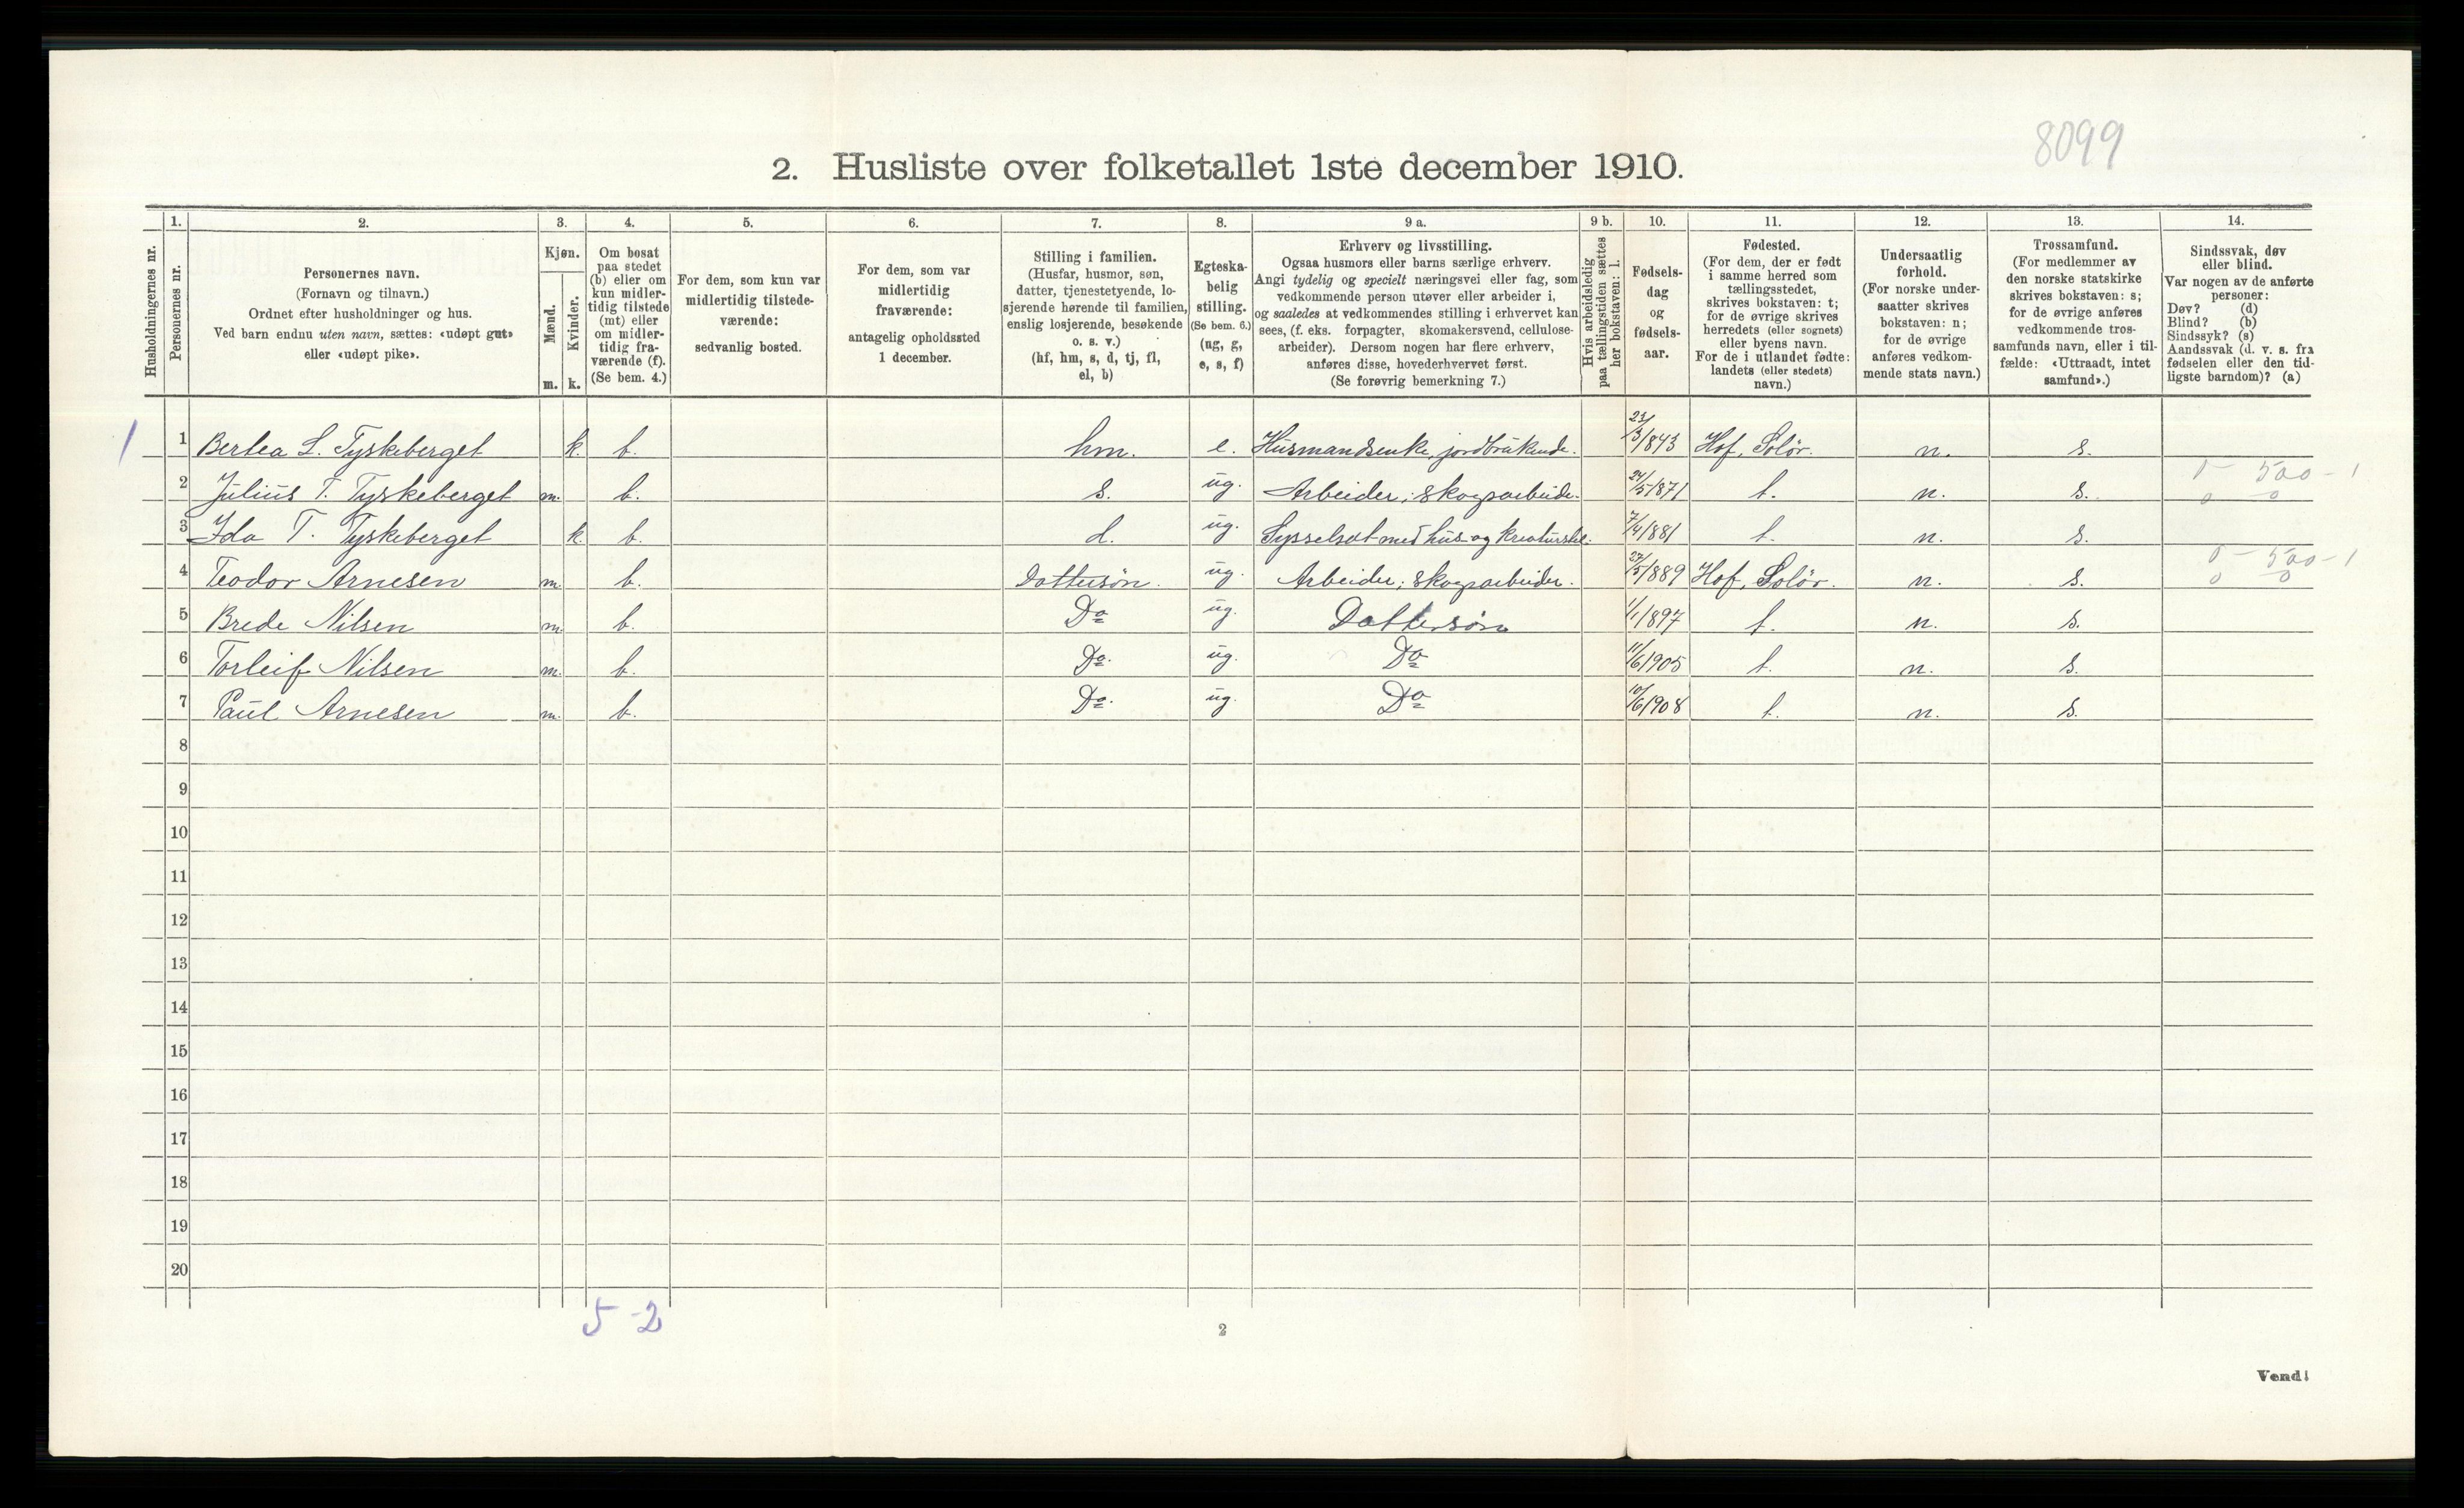 8099
2. Husliste over folketallet 1ste december 1910.
Husholdningernes nr.
1.
Personernes nr.
2.
Personernes navn.
(Fornavn og tilnavn.)
Ordnet efter husholdninger og hus.
Ved barn endnu uten navn, sættes: «udøpt gut»
eller «udøpt pike».
3.
Kjøn.
Mænd.
m.
Kvinder.
k.
4.
Om bosat
paa stedet
(b) eller om
kun midler-
tidig tilstede
(mt) eller
om midler-
tidig fra-
værende (f).
(Se bem. 4.)
5.
For dem, som kun var
midlertidig tilstede-
værende:
sedvanlig bosted.
6.
For dem, som var
midlertidig
fraværende:
antagelig opholdssted
1 december.
7.
Stilling i familien.
(Husfar, husmor, søn,
datter, tjenestetyende, lo-
sjerende hørende til familien,
enslig losjerende, besøkende
o. s. v.)
(hf, hm, s, d, tj, fl,
el, b)
8.
Egteska-
belig
stilling.
(Se bem. 6.)
(ug, g,
e, s, f)
9 a.
Erhverv og livsstilling.
Ogsaa husmors eller barns særlige erhverv.
Angi tydelig og specielt næringsvei eller fag, som
vedkommende person utøver eller arbeider i,
og saaledes at vedkommendes stilling i erhvervet kan
sees, (f. eks. forpagter, skomakersvend, cellulose-
arbeider). Dersom nogen har flere erhverv,
anføres disse, hovederhvervet først.
(Se forøvrig bemerkning 7.)
9 b.
Hvis arbeidsledig
paa tællingstiden sættes
her bokstaven: l.
10.
Fødsels-
dag
og
fødsels-
aar.
11.
Fødested.
(For dem, der er født
i samme herred som
tællingsstedet,
skrives bokstaven: t;
for de øvrige skrives
herredets (eller sognets)
eller byens navn.
For de i utlandet fødte:
landets (eller stedets)
navn.)
12.
Undersaatlig
forhold.
(For norske under-
saatter skrives
bokstaven: n;
for de øvrige
anføres vedkom-
mende stats navn.)
13.
Trossamfund.
(For medlemmer av
den norske statskirke
skrives bokstaven: s;
for de øvrige anføres
vedkommende tros-
samfunds navn, eller i til-
fælde: «Uttraadt, intet
samfund».)
14.
Sindssvak, døv
eller blind.
Var nogen av de anførte
personer:
Døv? (d)
Blind? (b)
Sindssyk? (s)
Aandssvak (d. v. s. fra
fødselen eller den tid-
ligste barndom)? (a)
1 1 Bertea L. Tyskeberget k. b. hm. e. Husmandsenke, jordbrukende. 23/3/843 Hof, Solör. n. s.
2 Julius T. Tyskeberget m. b. s. ug. Arbeider; skogsarbeide. 24/5/871 t. n. s. 0 - 500 - 1
0 0
3 Ida T. Tyskeberget k. b. d. ug. Sysselsat med hus- og kreaturstel. 7/4/881 t. n. s.
4 Teodor Arnesen m. b. Dattersön. ug. Arbeider; skogsarbeider. 27/5/889 Hof, Solör. n. s. 0 - 500 - 1
0 0
5 Brede Nilsen m. b. Do ug. Dattersön 1/1/897 t. n. s.
6 Torleif Nilsen m. b. Do. ug. Do 11/6/1905 t. n. s.
7 Paul Arnesen m. b. Do. ug. Do 10/6/1908 t. n. s.
8
9
10
11
12
13
14
15
16
17
18
19
20
5 - 2
2
Vend!